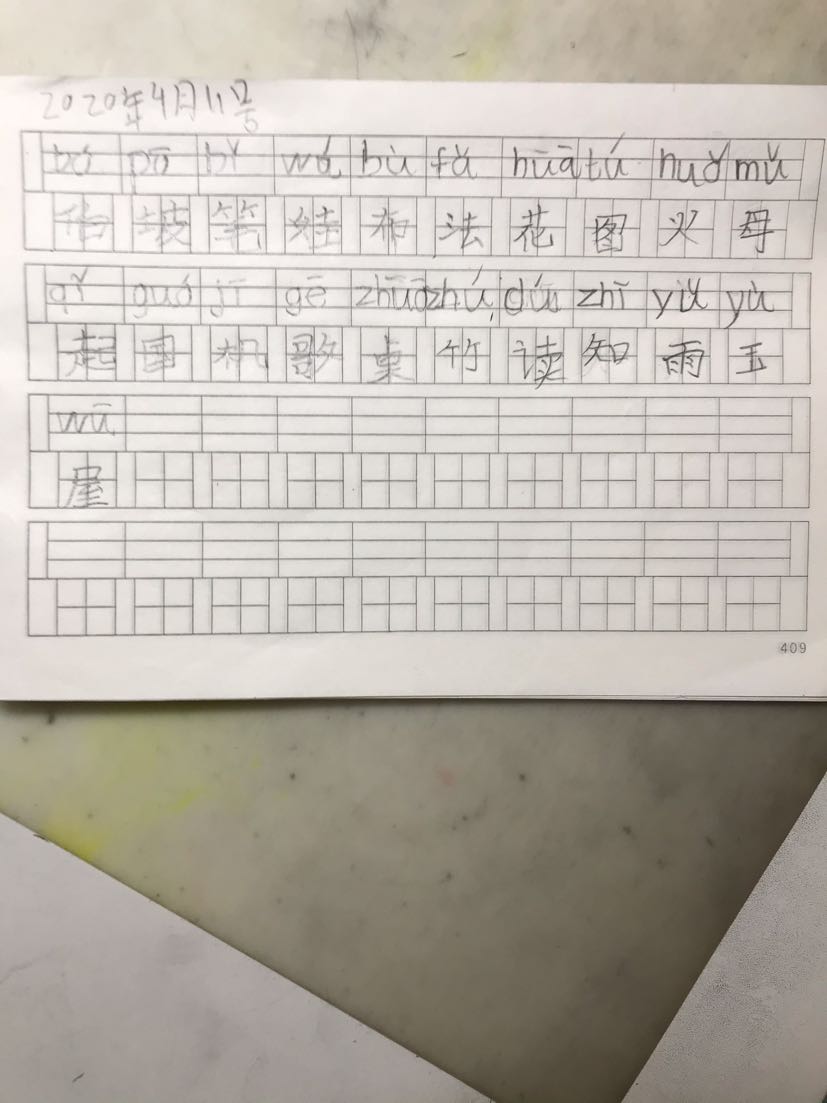 2020年4月11号
bó pō bǐ wá bù fǎ huā tú huǒ mǔ
伯 坡 笔 娃 布 法 花 图 火 母
qǐ guó jī gē zhuō zhú dú zhī yǔ yù
起 国 机 歌 桌 竹 读 知 雨 玉
wū
屋
409